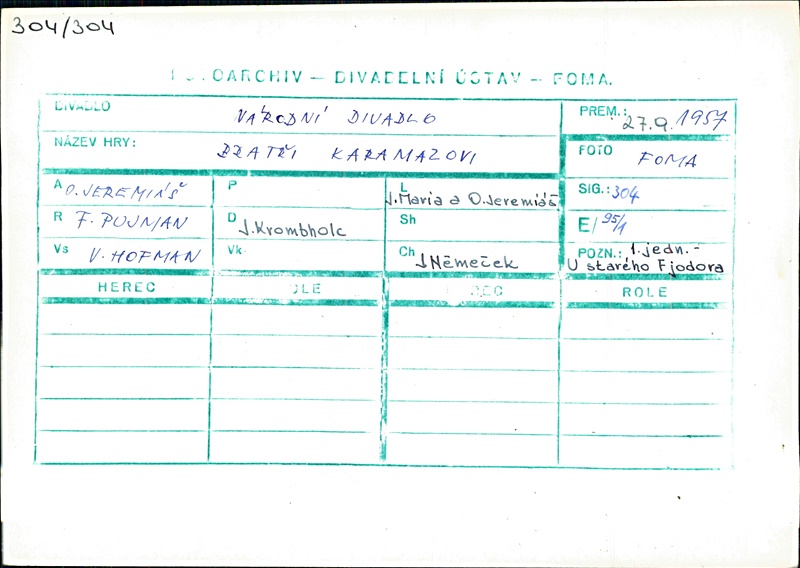 304/304
OARCHIV — DIVADELNÍ ÚSTAV — FOMA.
DIVADLO NÁRODNÍ DIVADLO
PREM.: 27.9. 1957
NÁZEV HRY: BRATŘI KARAMAZOVI
FOTO FOMA
A O. JEREMIÁŠ
P
L J. Maria a O. Jeremiáš
SIG.: 304
R F. PUJMAN
D J. Krombholc
Sh
E/ 95/1
Vs V. HOFMAN
Vk
Ch J Němeček
POZN.: 1. jedn. -
U starého Fjodora
HEREC
ROLE